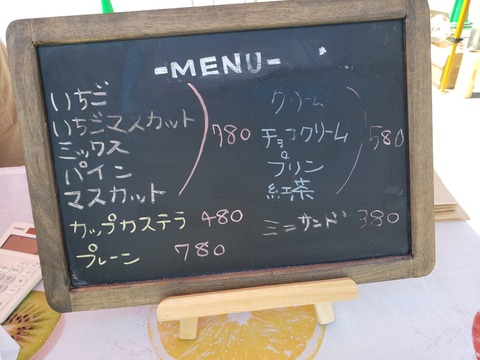 -MENU-
いちご
いちごマスカット
ミックス
パイン
マスカット
780
カップカステラ 480
プレーン 780
クリーム
チョコクリーム
プリン
紅茶
580
ミニサンド 380